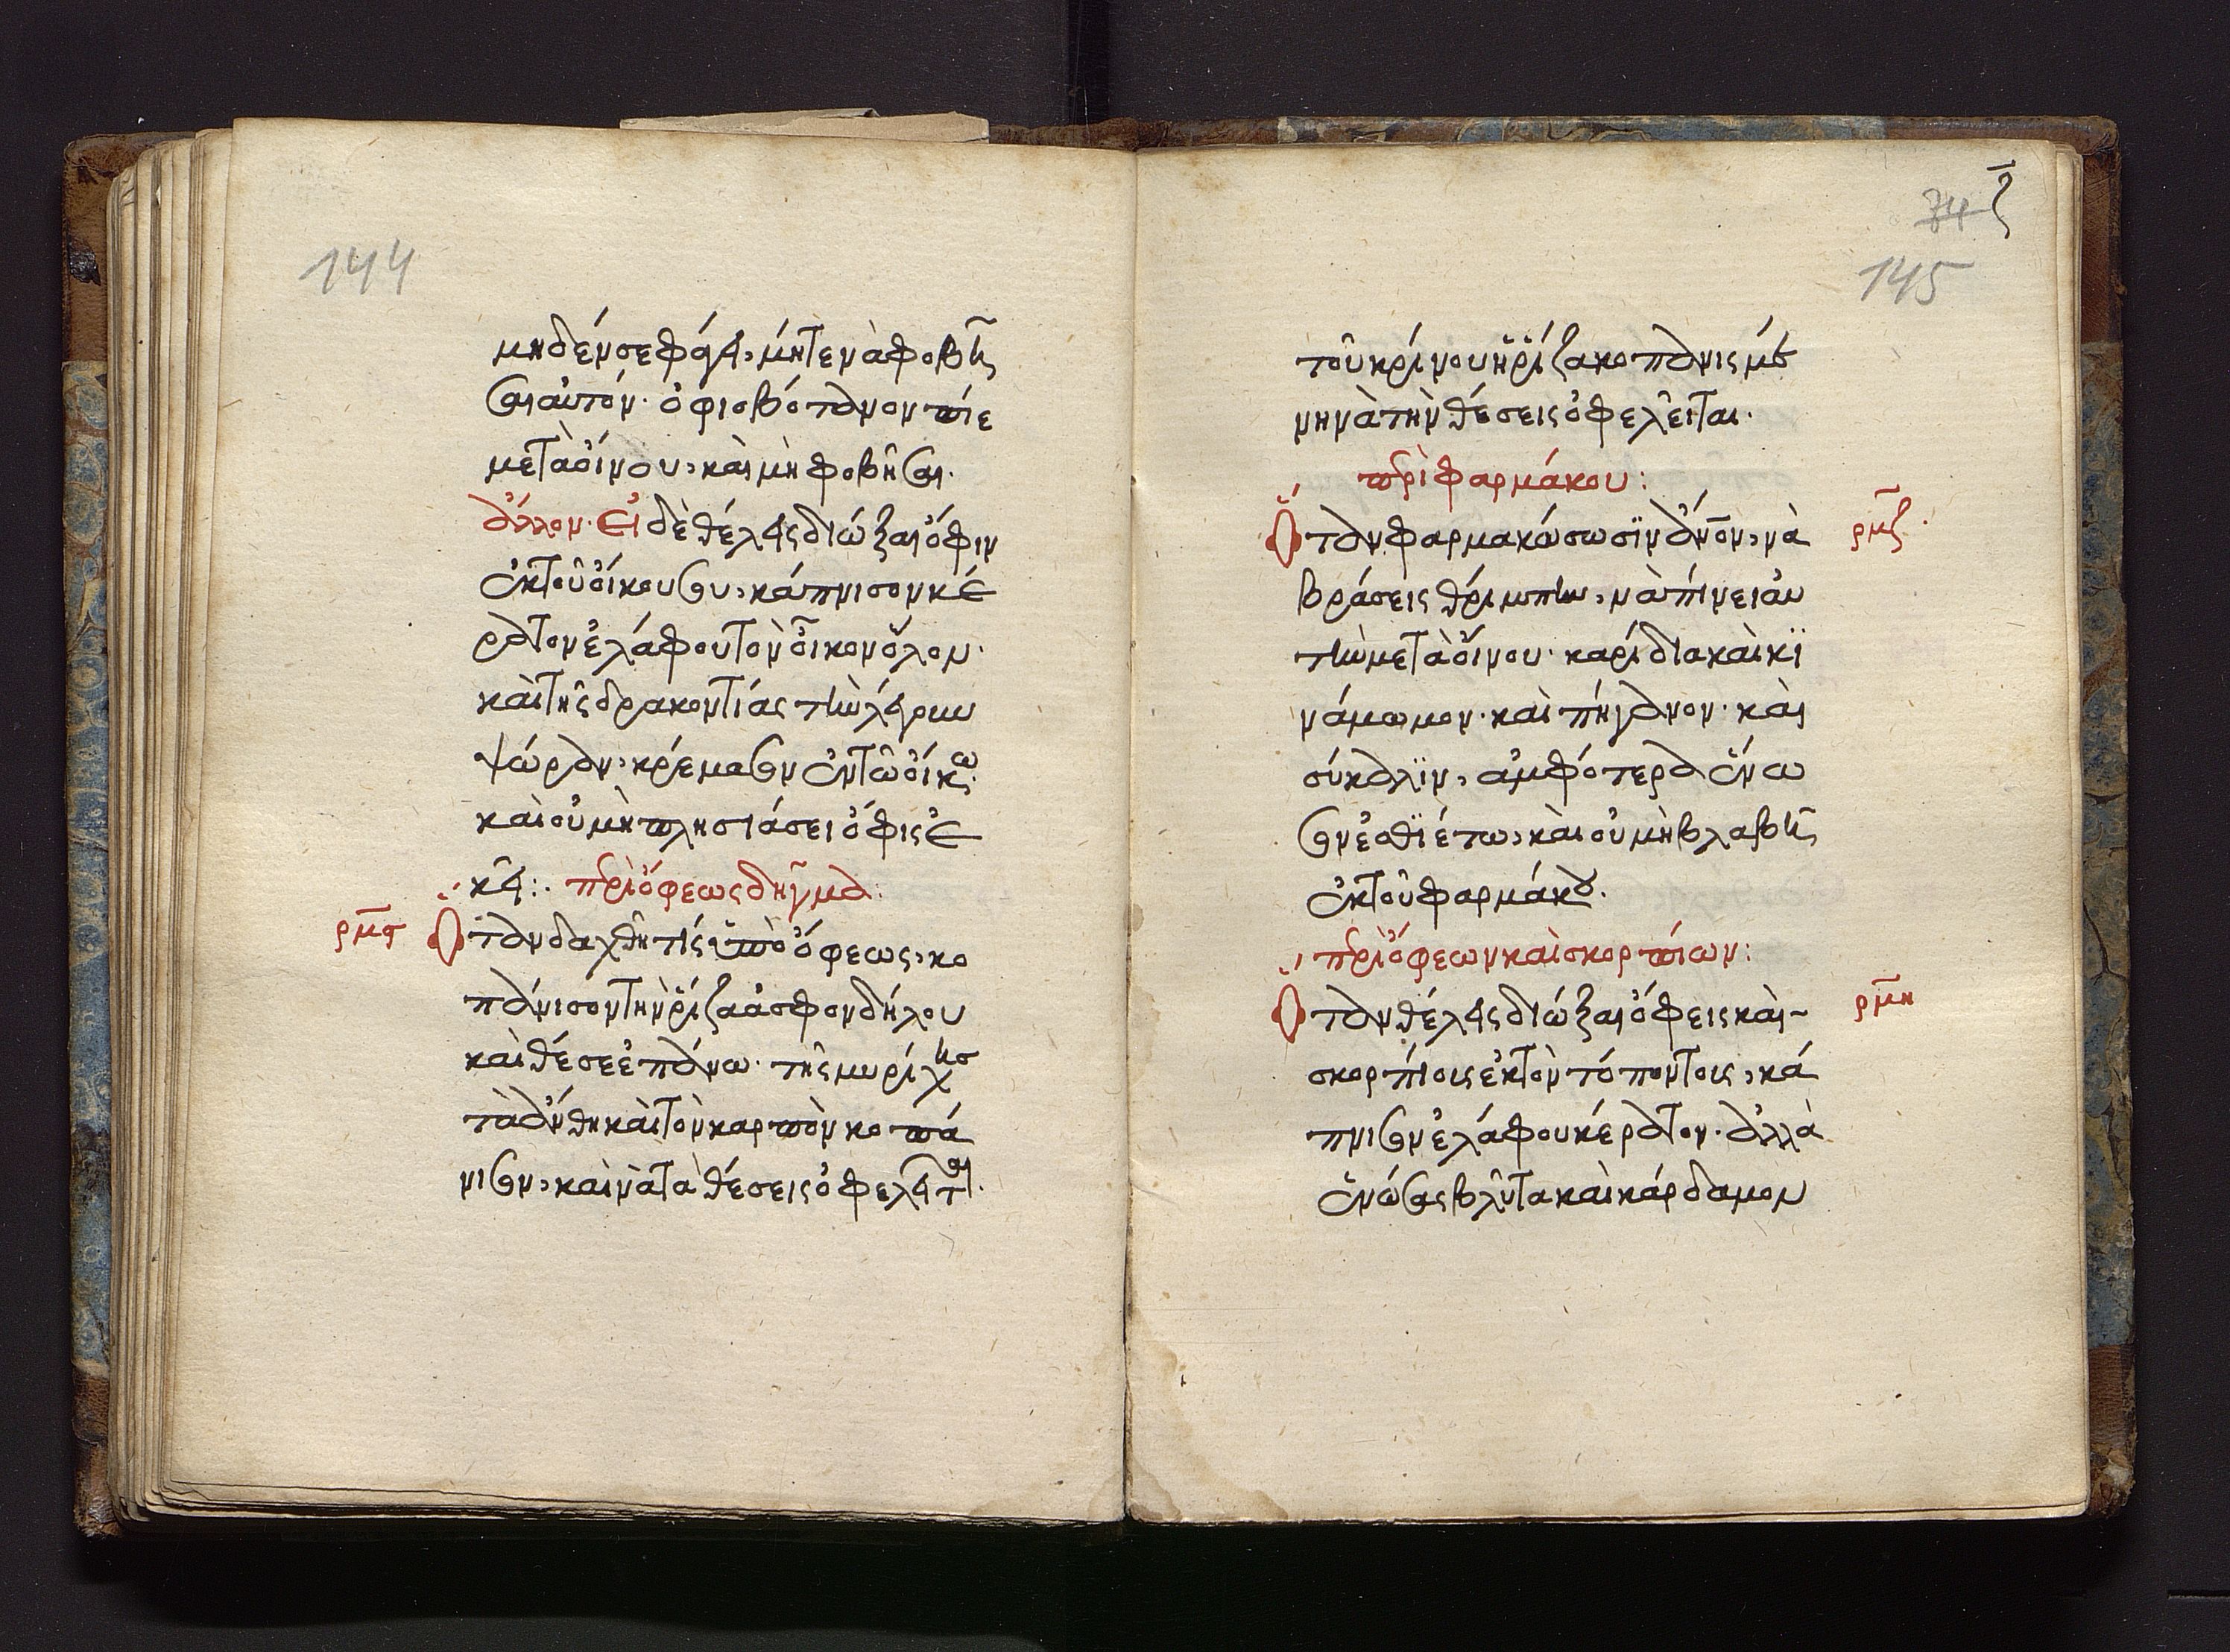 144
μηδέν σε φάγει, μήτε νὰ φοβῆ
σαι αὐτόν· ὀφιοβότανον πίε
μετὰ οἴνου, καὶ μὴ φοβῆσαι.
ἄλλον· Εἰ δὲ θέλεις διώξαι ὄφιν
ἐκ τοῦ οἴκου σου, κάπνισον κέ
ρατον ἐλάφου τὸν οἶκον ὅλον·
καὶ τῆς δρακοντίας τὴν
κρέμασον ἐν τῶ οἴκω·
καὶ οὐ μὴ πλησιάσει ὄφις ἐ
κεῖ:· περὶ ὄφεως δῆγμα:
ρμς Ὅταν δαχθῆ τίς ὑπὸ ὄφεως, κο
πάνισον τὴν ῥίζα ἀσφονδήλου
καὶ θέσε ἐπάνω· τῆς μυρίκης
τὰ ἄνθη καὶ τὸν καρπὸν κοπά
νισον, καὶ νὰ τὰ θέσεις ὀφελεῖται.
74 ζ
145
τοῦ κρίνου ἡ ῥίζα κοπανισμέ
νη νὰ τὴν θέσεις ὀφελεῖται.
περὶ φαρμάκου:
Ὅταν φαρμακώσωσϊν ἄνον, νὰ ρμζ
βράσεις θρίμπην, νὰ πίνει αὐ
τὴν μετὰ οἴνου· καρίδια καὶ κϊ
νάμωμον· καὶ πήγανον· καὶ
σύκαλϊν, ἀμφότερα ἕνω
σον ἐσθϊέτω, καὶ οὐ μὴ βλαβῆ
ἐκ τοῦ φαρμάκου.
περὶ ὄφεων καὶ σκορπίων:
Ὅταν θέλεις διώξαι ὄφεις καὶ ρμη
σκορπίοις ἐκ τὸν τόπον τοις, κά
πνισον ἐλάφου κέρατον· ἀλλὰ
ἑνώσας βλῖτα καὶ κάρδαμον